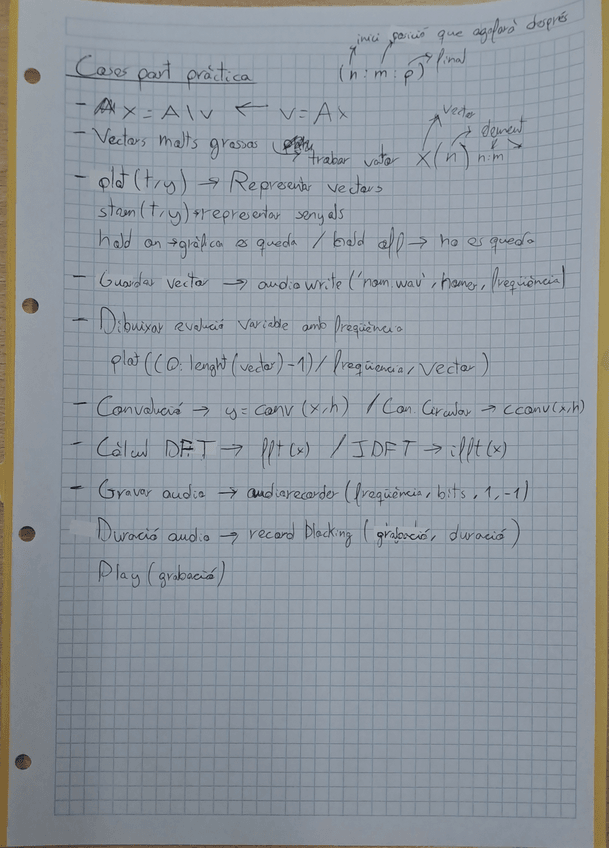 inici posició que agafarà després
Coses part pràctica
(n:m:p) final
- x = A\v ← v = Ax
- Vectors molts grossos → trobar valor x(n) n:m
vector
element
- plot(t,y) → Representar vectors
stem(t,y) → representar senyals
hold on → gràfica es queda / hold off → no es queda
- Guardar vector → audiowrite('nom.wav', nomer, freqüència)
- Dibuixar evolució variable amb freqüència
plot((0:lenght(vector)-1)/freqüencia, vector)
- Convolució → y = conv(x,h) / Con. Circular → cconv(x,h)
- Càlcul DFT → fft(x) / IDFT → ifft(x)
- Gravar audio → audiorecorder(freqüència, bits, 1, -1)
Duració audio → record blocking (grabació, duració)
Play(grabació)